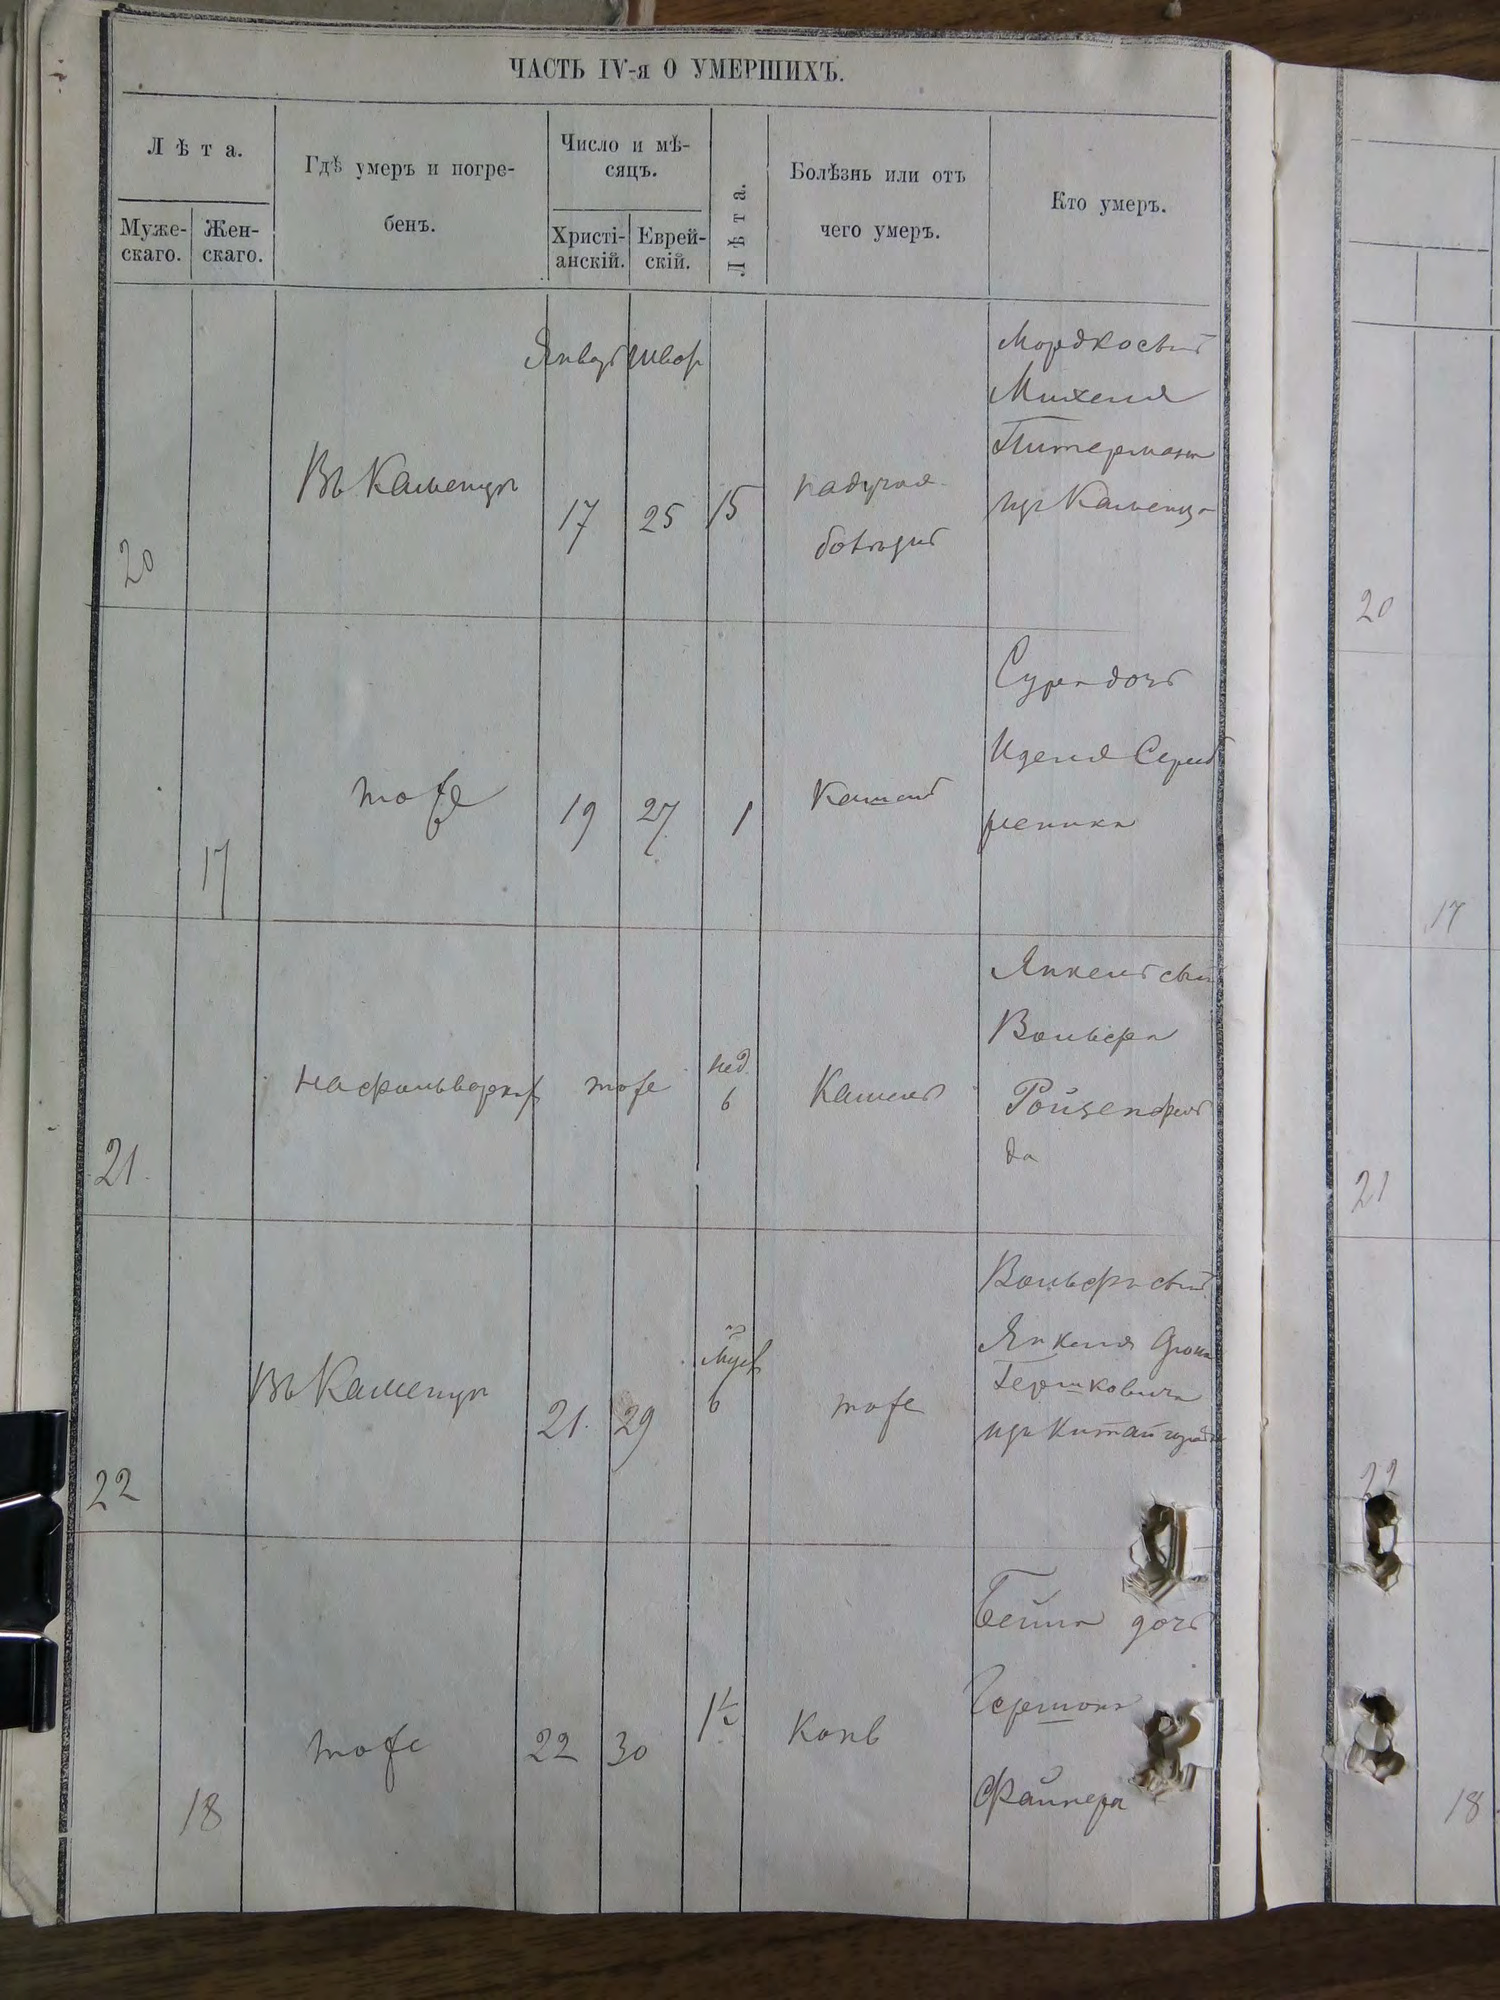 ЧАСТЬ IV-я О УМЕРШИХЪ.
Лѣта.
Муже-
скаго.
Жен-
скаго.
Гдѣ умеръ и погре-
бенъ.
Число и мѣ-
сяцъ.
Христі-
анскій.
Еврей-
скій.
Лѣта.
Болѣзнь или отъ
чего умеръ.
Кто умеръ.
20
Въ Каменцѣ
17
25
15
падучая
Мордко сынъ
Михеля
Питермана
изъ Каменца
17
тоже
19
27
1
Кашель
Сура дочь
Иделя
21
на фольваркѣ
тоже
нед.
6
Кашель
Янкель сынъ
Вольфа
Ройзенфель
да
22
Въ Каменцѣ
21
29
6
тоже
Вольфъ сынъ
Янкеля
Гершковича
изъ Китайгорода
18
тоже
22
30
1½
Бейла дочь
Гершона
Файнера
20
17
21
22
18